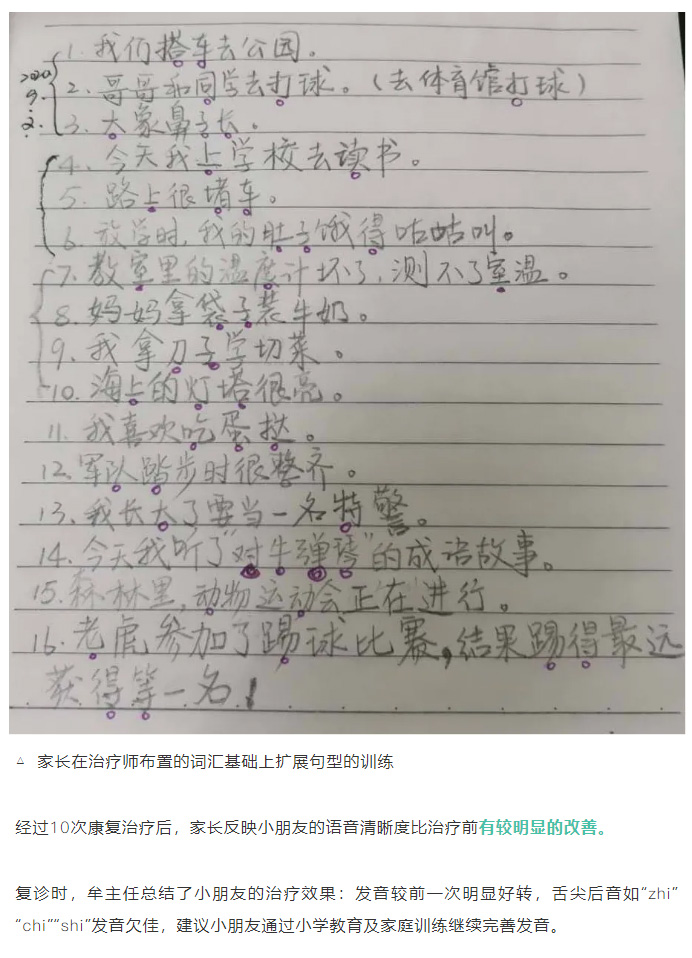 1. 我们搭车去公园。
2020
9.
2.
2. 哥哥和同学去打球。(去体育馆打球)
3. 大象鼻子长。
4. 今天我上学校去读书。
5. 路上很堵车。
6. 放学时,我的肚子饿得咕咕叫。
7. 教室里的温度计坏了,测不了室温。
8. 妈妈拿袋子装牛奶。
9. 我拿刀子学切菜。
10. 海上的灯塔很亮。
11. 我喜欢吃蛋挞。
12. 军队踏步时很整齐。
13. 我长大了要当一名特警。
14. 今天我听了"对牛弹琴"的成语故事。
15. 森林里,动物运动会正在进行。
16. 老虎参加了踢球比赛,结果踢得最远
获得等一名!
△ 家长在治疗师布置的词汇基础上扩展句型的训练
经过10次康复治疗后，家长反映小朋友的语音清晰度比治疗前有较明显的改善。
复诊时，牟主任总结了小朋友的治疗效果：发音较前一次明显好转，舌尖后音如“zhi”
“chi”“shi”发音欠佳，建议小朋友通过小学教育及家庭训练继续完善发音。